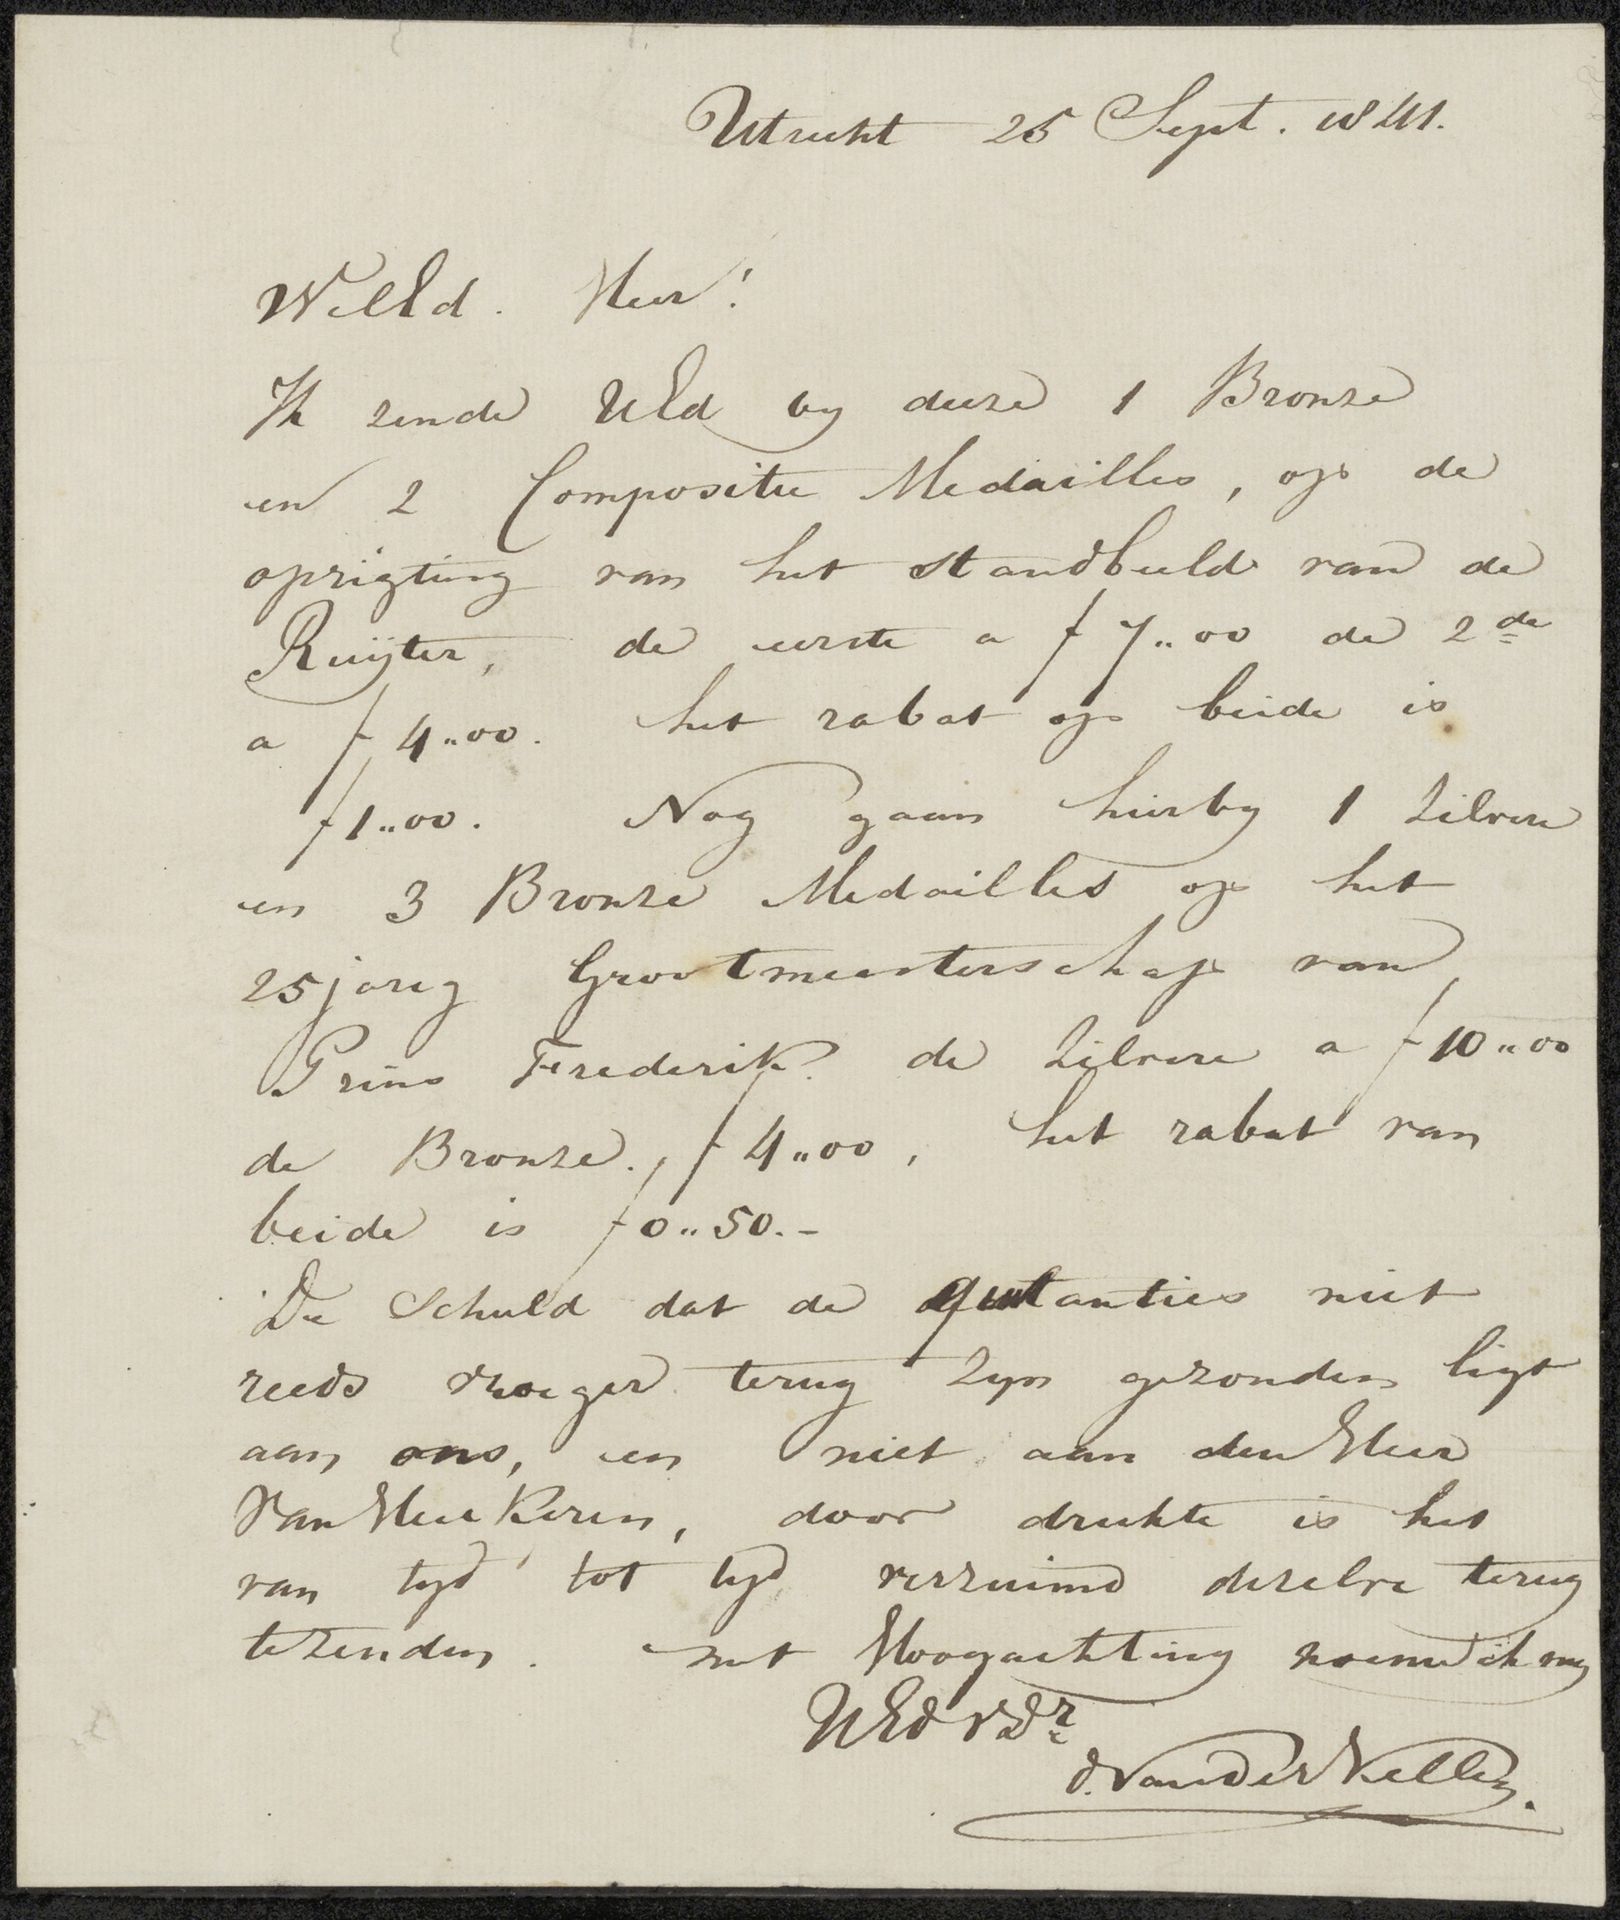 Utrecht 25 Sept. 1841.
WelEd. Heer!
Ik zende UEd by deeze 1 Bronze
en 2 Compositie Medailles, op de
oprigting van het standbeeld van de
Ruijter, de eerste a f 7„00 de 2de
a f 4„00. het rabat op beide is
f 1„00. Nog gaan hierby 1 Zilvere
en 3 Bronze Medailles op het
25jarig Grootmeesterschap van
Prins Frederik. de Zilvere a f 10„00
de Bronze. f 4„00, het rabat van
beide is f 0„50.-
De Schuld dat de quitanties niet
reeds vroeger terug zyn gezonden ligt
aan ons, en niet aan den Heer
Van Heekeren, door drukte is het
van tyd tot tyd verzuimd dezelve terug
te zenden. met Hoogachting noeme ik my
UEd vDr
D. Van Der Kellen.